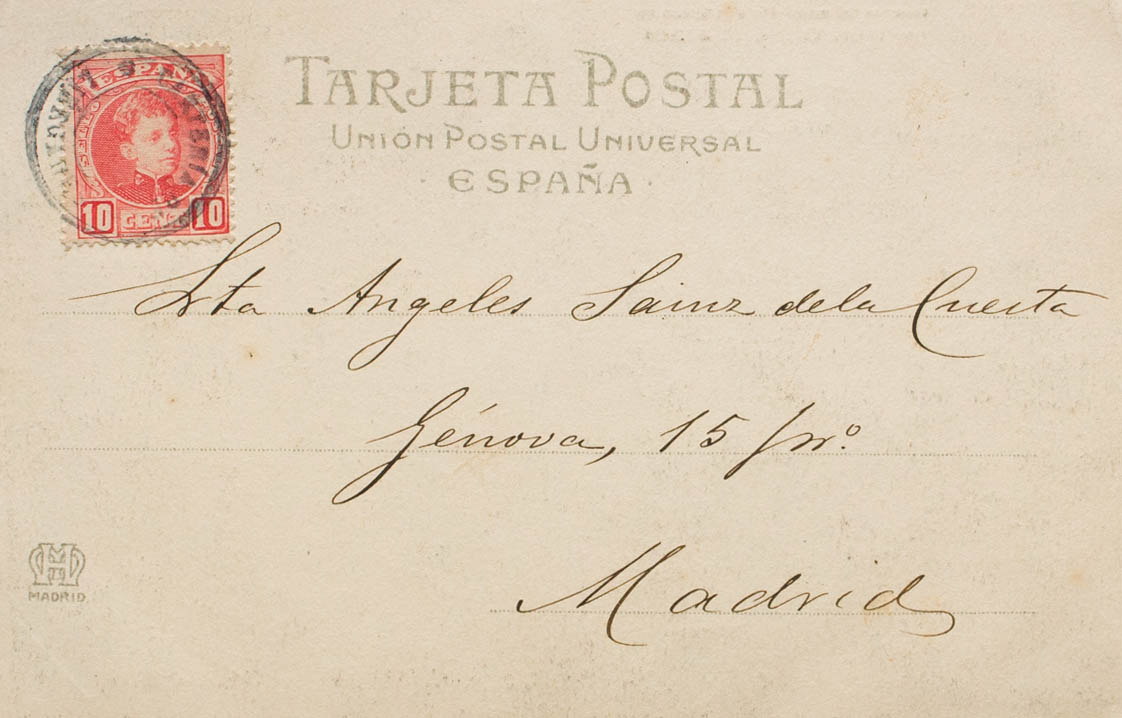 ESPAÑA
10 CENT 10
TARJETA POSTAL
UNIÓN POSTAL UNIVERSAL
· ESPAÑA ·
Srta Angeles Sainz de la Cuesta
Génova, 15 prº
Madrid
MADRID